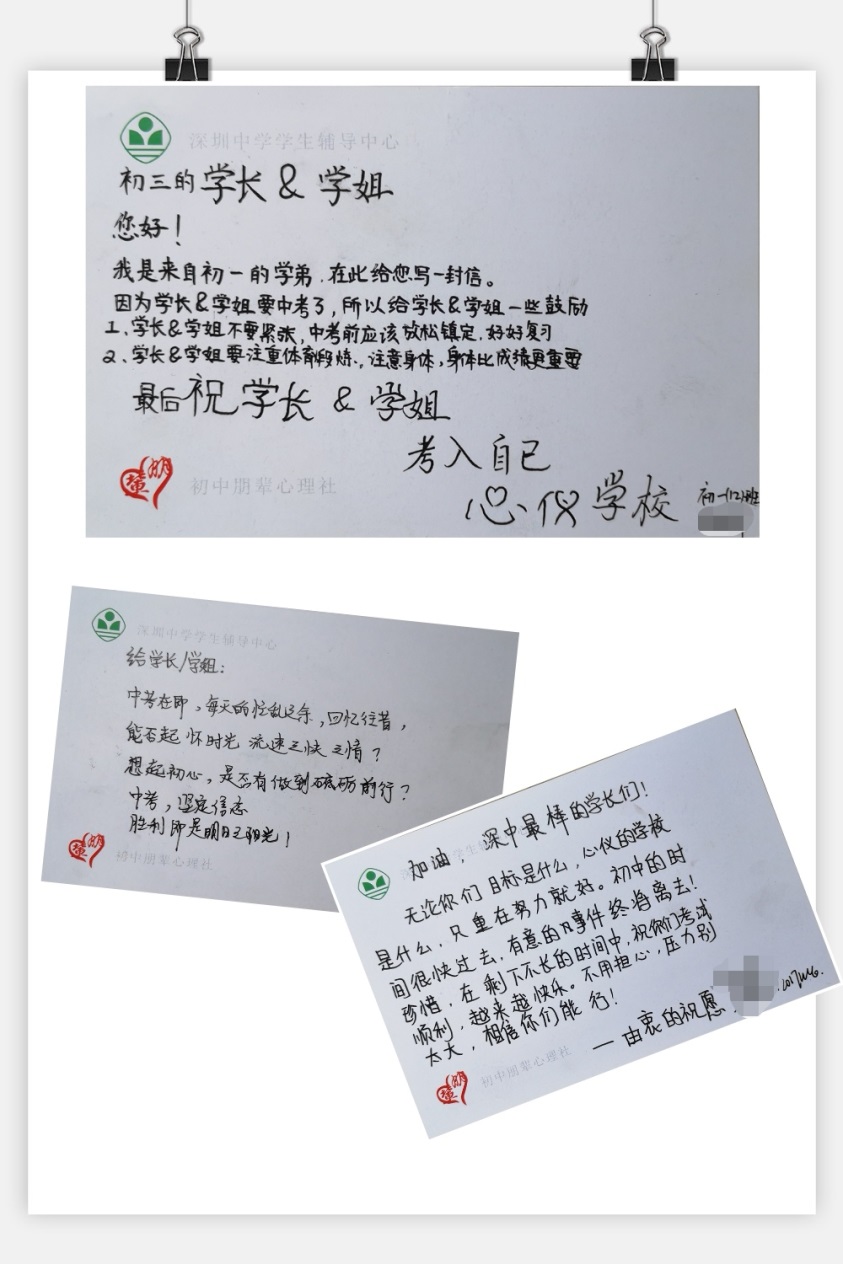 深圳中学学生辅导中心
初三的学长&学姐
您好!
我是来自初一的学弟,在此给您写一封信。
因为学长&学姐要中考了,所以给学长&学姐一些鼓励
1、学长&学姐不要紧张,中考前应该放松镇定,好好复习
2、学长&学姐要注重体育锻炼,注意身体,身体比成绩更重要
最后祝学长 & 学姐
考入自己
心仪学校
初一(12)班
初中朋辈心理社
深圳中学学生辅导中心
给学长/学姐:
中考在即,每天的忙乱之余,回忆往昔,
能否起怀时光流速之快之情?
想起初心,是否有做到砥砺前行?
中考,坚定信念
胜利即是明日之阳光!
初中朋辈心理社
加油,深中最棒的学长们!
无论你们目标是什么,心仪的学校
是什么,只重在努力就好。初中的时
间很快过去,有意的事件终将离去!
珍惜,在剩下不长的时间中,祝你们考试
顺利,越来越快乐。不用担心,压力别
太大,相信你们能行!
—由衷的祝愿
初中朋辈心理社